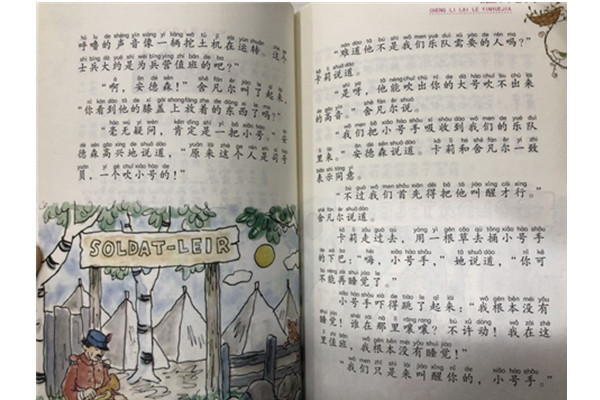 呼噜的声音像一辆挖土机在运转。这个
士兵大约是为兵营值班的吧?
“啊,安德森!”舍凡尔叫了起来,
“你看到他的膝盖上放着的东西了吗?”
“毫无疑问,肯定是一把小号。”安
德森高兴地说道,“原来这个人是司号
员,一个吹小号的!”
SOLDAT-LEIR
CHENG LI LAI LE YINYUEJIA
“难道他不是我们乐队需要的人吗?”
卡莉说道。
“是呀,他能吹出你的大号吹不出来
的高音。”舍凡尔说。
“我们把小号手吸收到我们的乐队
里来。”安德森说道。卡莉和舍凡尔一致
表示同意。
“不过我们首先得把他叫醒才行。”
舍凡尔说道。
卡莉走过去,用一根草去捅小号手
的下巴:“嗨,小号手,”她说道,“你可
不能再睡觉了。”
小号手吓得跳了起来:“我根本没有
睡觉!谁在那里嚷嚷?不许动!我在这
里值班,我根本没有睡觉!”
“我们只是来叫醒你的,小号手。”